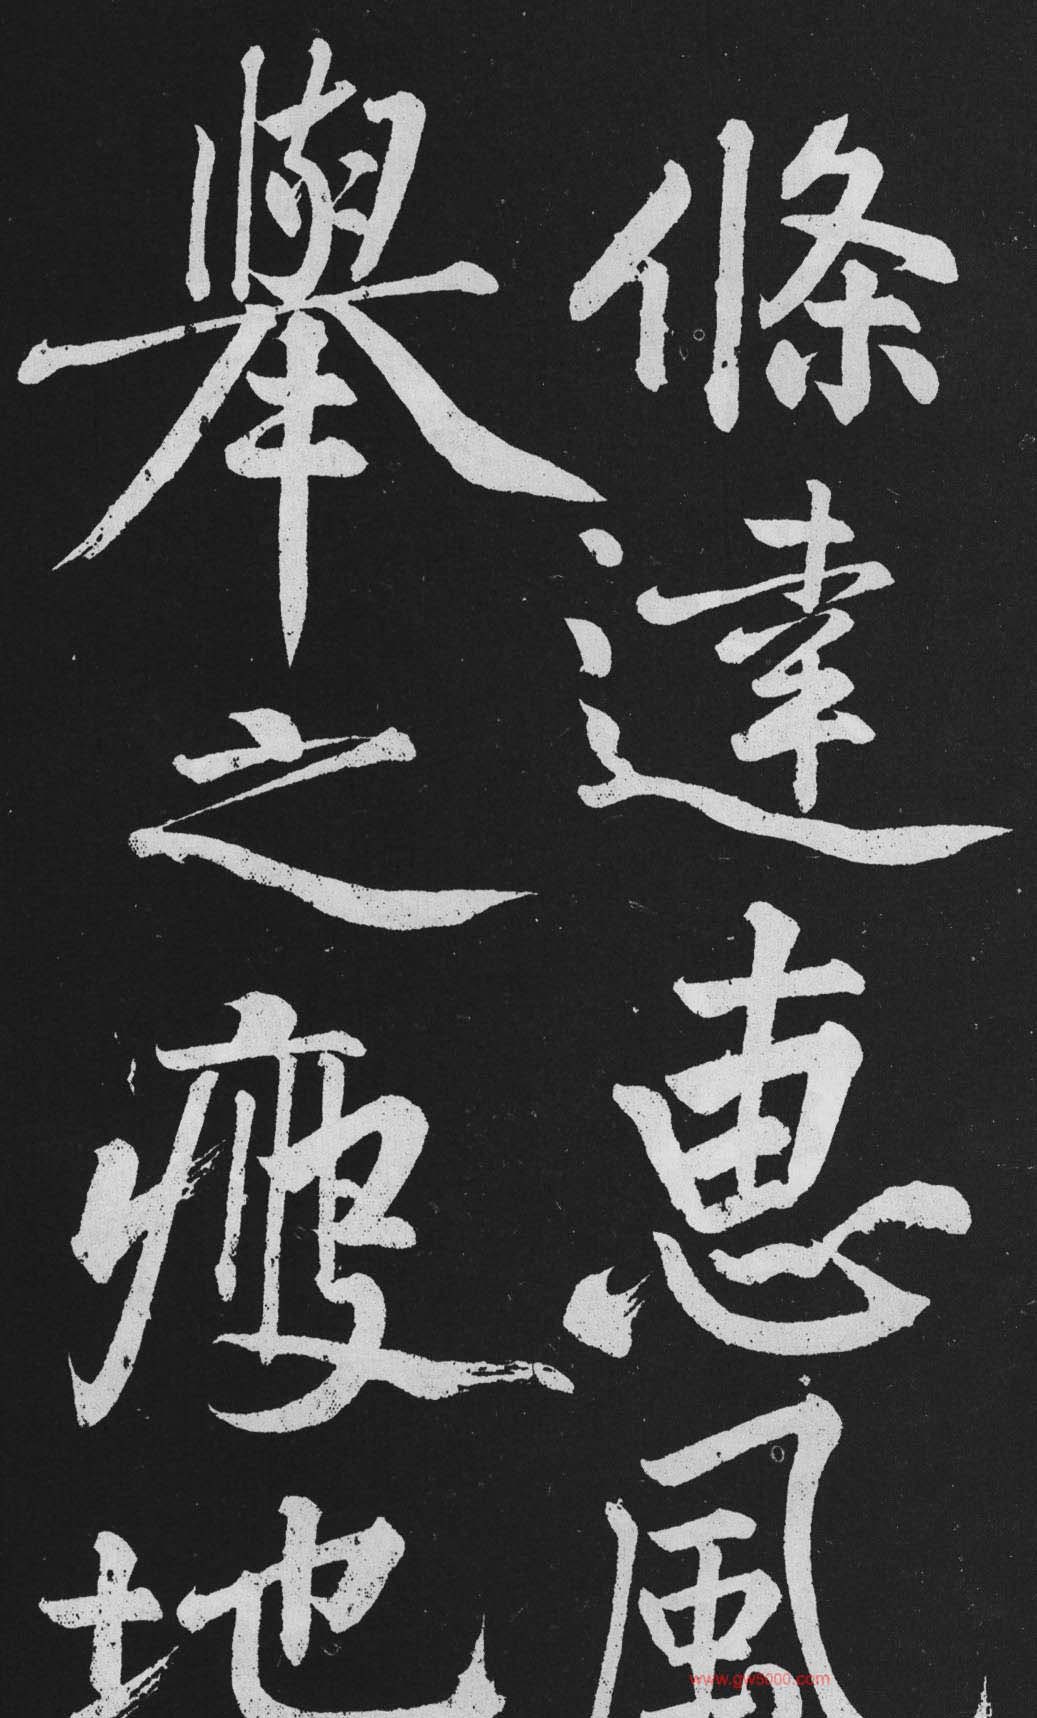 條達惠風
舉之瘦地
www.gw5000.com